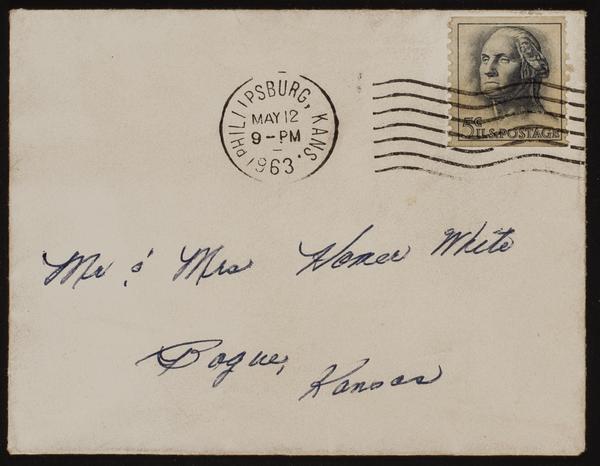 PHILLIPSBURG, KANS.
MAY 12
9-PM
1963
5¢
U.S. POSTAGE
Mr & Mrs Homer White
Bogue,
Kansas